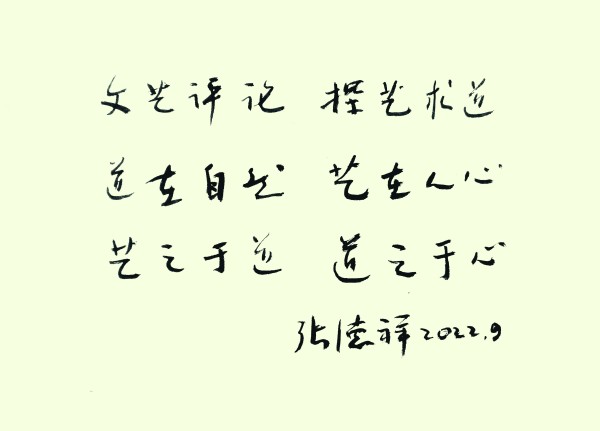 文艺评论 探艺求道
道在自然 艺在人心
艺之于道 道之于心
张德祥2022.9